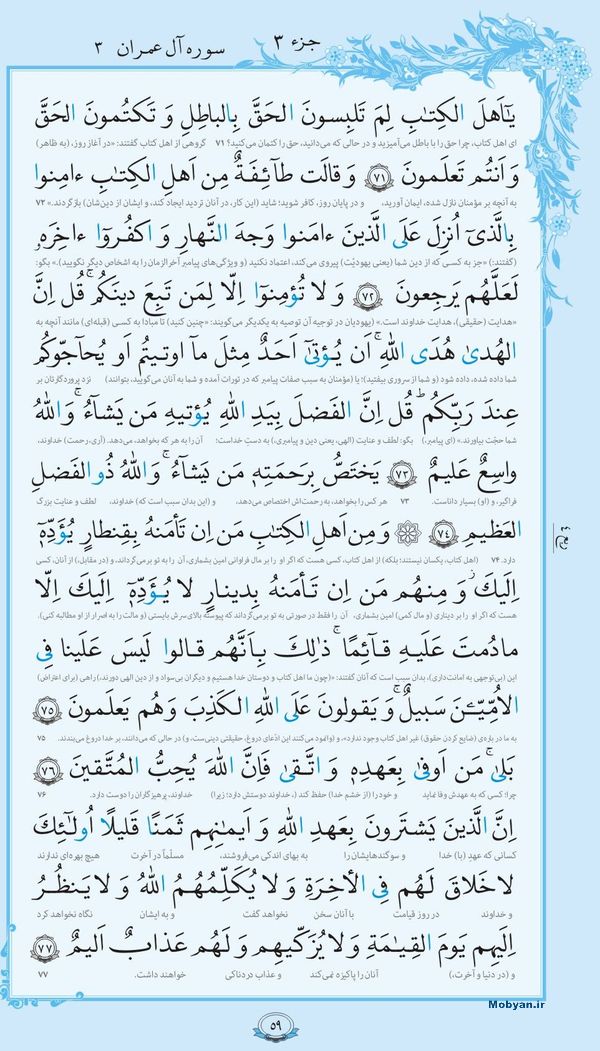 جزء ۳
سوره آل عمران ۳
يٰٓاَهلَ الكِتٰبِ لِمَ تَلبِسونَ الحَقَّ بِالباطِلِ وَ تَكتُمونَ الحَقَّ
ای اهل کتاب، چرا حق را با باطل می‌آمیزید و در حالی که می‌دانید، حق را کتمان می‌کنید؟ ۷۱ گروهی از اهل کتاب گفتند: «در آغاز روز، (به ظاهر)
وَ اَنتُم تَعلَمونَ ﴿۷۱﴾ وَ قالَت طآئِفَةٌ مِن اَهلِ الكِتٰبِ ءامِنوا
به آنچه بر مؤمنان نازل شده، ایمان آورید، و در پایان روز، کافر شوید؛ شاید (این کار، در آنان تردید ایجاد کند، و ایشان از دین‌شان) بازگردند.» ۷۲
بِالَّذىٓ اُنزِلَ عَلَى الَّذينَ ءامَنوا وَجهَ النَّهارِ وَ اكفُروٓا ءاخِرَهٗ
(گفتند:) «جز به کسی که از دین شما (یعنی یهودیّت) پیروی می‌کند، اعتماد نکنید (و ویژگی‌های پیامبر آخرالزمان را به اشخاص دیگر نگویید).» بگو:
لَعَلَّهُم يَرجِعونَ ﴿۷۲﴾ وَ لا تُؤمِنوٓا اِلّا لِمَن تَبِعَ دينَكُم ۚ قُل اِنَّ
«هدایت (حقیقی)، هدایت خداوند است.» (یهودیان در توجیه آن توصیه به یکدیگر می‌گویند: «چنین کنید) تا مبادا به کسی (قبله‌ای) مانند آنچه به
الهُدىٰ هُدَى اللهِ ۗ اَن يُؤتىٰٓ اَحَدٌ مِثلَ مآ اوتيتُم اَو يُحآجّوكُم
شما داده شده، داده شود (و شما از سروری بیفتید)؛ یا (مؤمنان به سبب صفات پیامبر که در تورات آمده و شما به آنان می‌گویید، بتوانند) نزد پروردگارتان بر
عِندَ رَبِّكُم ۗ قُل اِنَّ الفَضلَ بِيَدِ اللهِ يُؤتيهِ مَن يَشآءُ ۗ وَ اللهُ
شما حجّت بیاورند.» (ای پیامبر،) بگو: لطف و عنایت (الهی، یعنی دین و پیامبری،) به دستِ خداست؛ آن را به هر که بخواهد، می‌دهد. (آری، رحمت) خداوند،
واسِعٌ عَليمٌ ﴿۷۳﴾ يَختَصُّ بِرَحمَتِهٖ مَن يَشآءُ ۗ وَ اللهُ ذُو الفَضلِ
فراگیر، و (او) بسیار داناست. ۷۳ هر کس را بخواهد، به رحمت‌اش اختصاص می‌دهد، و (این بدان سبب است که) خداوند، لطف و عنایت بزرگ
العَظيمِ ﴿۷۴﴾ وَ مِن اَهلِ الكِتٰبِ مَن اِن تَأمَنهُ بِقِنطارٍ يُؤَدِّهٖٓ
دارد. ۷۴ (اهل کتاب، یکسان نیستند؛ بلکه) از اهل کتاب، کسی هست که اگر او را بر مال فراوانی امین بشماری، آن را به تو برمی‌گرداند، و (در مقابل،) از آنان، کسی
اِلَيكَ وَ مِنهُم مَن اِن تَأمَنهُ بِدينارٍ لا يُؤَدِّهٖٓ اِلَيكَ اِلّا
هست که اگر او را بر دیناری (و مال کمی) امین بشماری، آن را فقط در صورتی به تو برمی‌گرداند که پیوسته بالای سرش بایستی (و مالت را به اصرار از او مطالبه کنی).
مادُمتَ عَلَيهِ قآئِمًا ۗ ذٰلِكَ بِاَنَّهُم قالوا لَيسَ عَلَينا فِى
این (بی‌توجهی به امانت‌داری)، بدان سبب است که آنان گفتند: «(چون ما اهل کتاب و دوستان خدا هستیم و دیگران بی‌سواد و از دین الهی دورند،) راهی (برای اعتراض)
الاُمِّيّـۧنَ سَبيلٌ ۚ وَ يَقولونَ عَلَى اللهِ الكَذِبَ وَ هُم يَعلَمونَ ﴿۷۵﴾
به ما درباره‌ی (ضایع کردن حقوق) غیر اهل کتاب وجود ندارد»، و (وانمود می‌کنند این ادّعای دروغ، حقیقتی دینی‌ست، و) در حالی که می‌دانند، بر خدا دروغ می‌بندند. ۷۵
بَلىٰ ۚ مَن اَوفىٰ بِعَهدِهٖ وَ اتَّقىٰ فَاِنَّ اللهَ يُحِبُّ المُتَّقينَ ﴿۷۶﴾
چرا؛ کسی که به عهدش وفا نماید و خود را (از خشم خدا) حفظ کند (، خداوند دوستش دارد؛ زیرا) خداوند، پرهیزگاران را دوست دارد. ۷۶
اِنَّ الَّذينَ يَشتَرونَ بِعَهدِ اللهِ وَ اَيمٰنِهِم ثَمَنًا قَليلًا اُولٰٓئِكَ
کسانی که عهدِ (با) خدا و سوگندهایشان را به بهای اندکی می‌فروشند، مسلّماً در آخرت هیچ بهره‌ای ندارند
لا خَلاقَ لَهُم فِى الأخِرَةِ وَ لا يُكَلِّمُهُمُ اللهُ وَ لا يَنظُرُ
و خداوند در روز قیامت با آنان سخن نخواهد گفت و به ایشان نگاه نخواهد کرد
اِلَيهِم يَومَ القِيٰمَةِ وَ لا يُزَكّيهِم وَ لَهُم عَذابٌ اَليمٌ ﴿۷۷﴾
و (در دنیا و آخرت،) آنان را پاکیزه نمی‌کند و عذاب دردناکی خواهند داشت. ۷۷
Mobyan.ir
۵۹